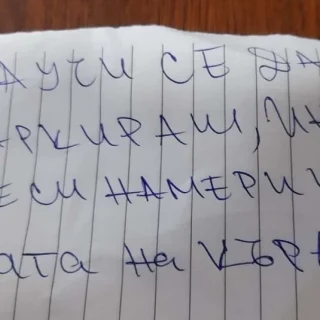 АУЧИ СЕ ДА
АРКИРАШ, ИН
ЕСИ НАМЕРИ
АТА НА КЪРА